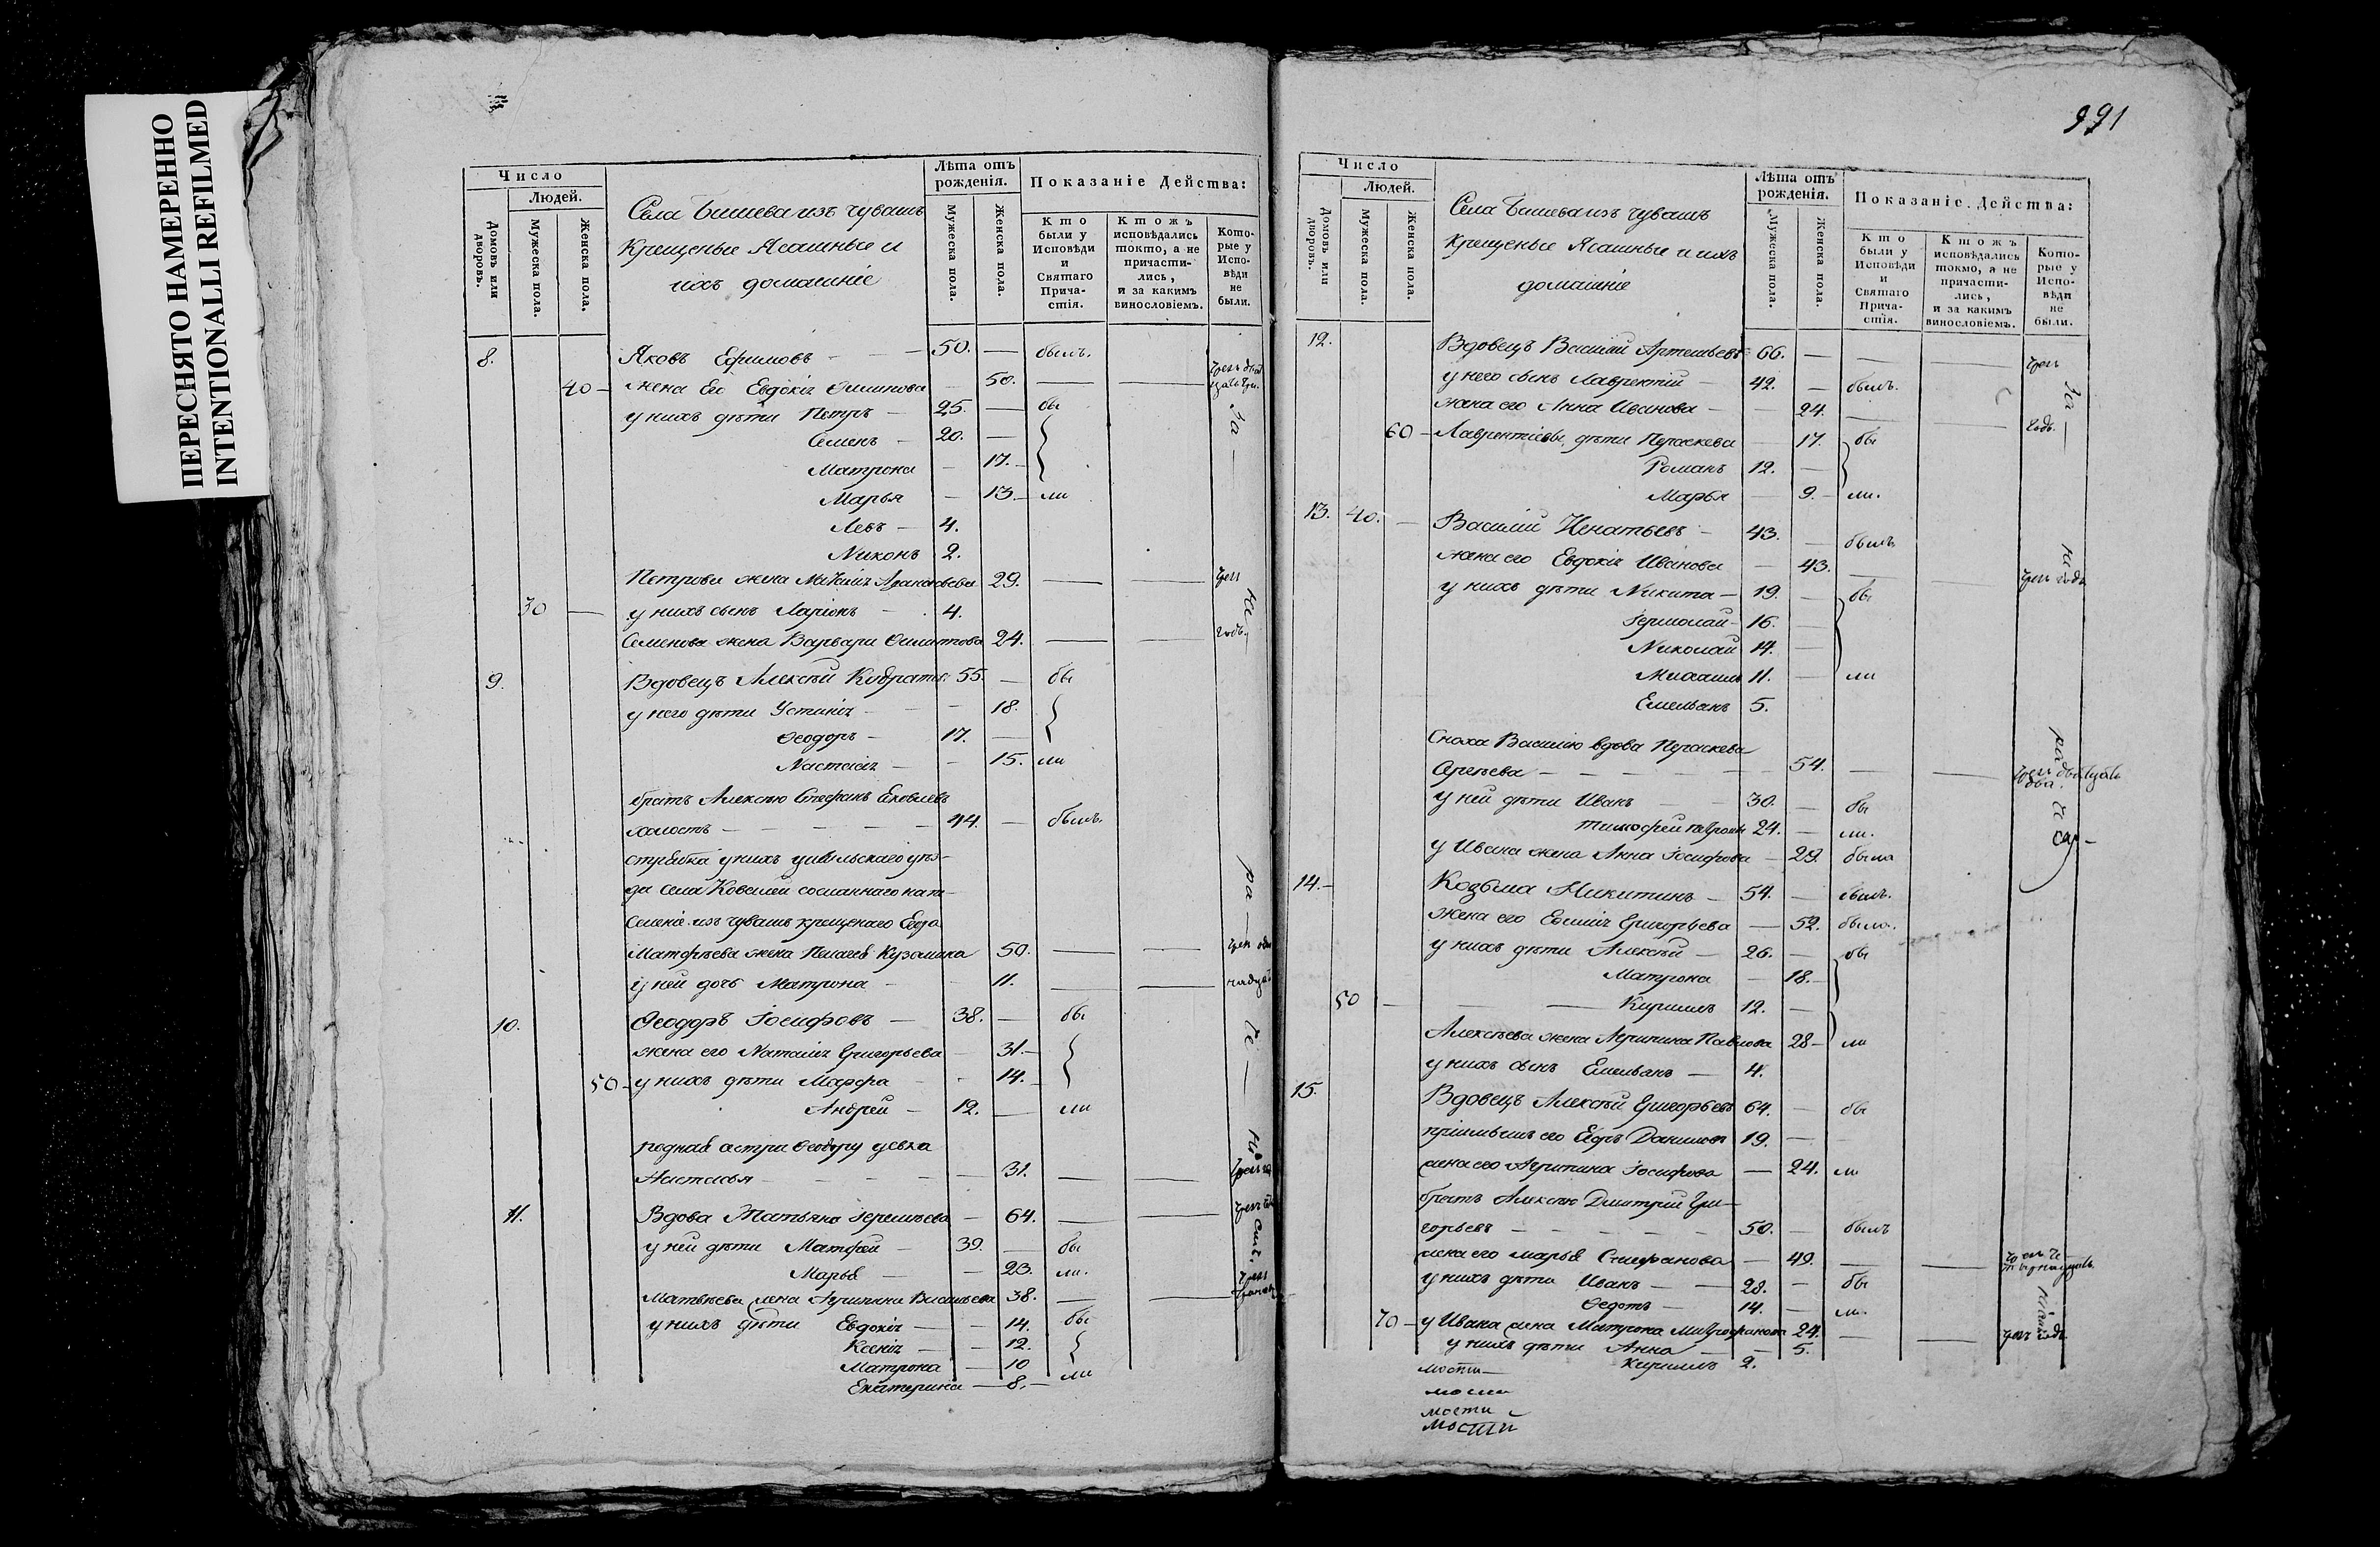 ПЕРЕСНЯТО НАМЕРЕННО
INTENTIONALLI REFILMED
991
Число
Людей.
Домовъ или дворовъ.
Мужеска пола.
Женска пола.
Села Бишева изъ чувашъ
крещеные Ясашные и
ихъ домашніе
Лѣта отъ рожденія.
Мужеска пола.
Женска пола.
Показаніе Действа:
Кто были у Исповѣди и Святаго Причастія.
Ктожъ исповѣдались токмо, а не причастились, и за какимъ винословіемъ.
Которые у Исповѣди не были.
8. Яковъ Ефимовъ — 50. — былъ.
40 — жена Его Евдокія — 50. —
у нихъ дѣти Петръ — 25. — бы
Семенъ — 20. —
Матрона — 17.
Марья — 13 — ли
Левъ — 4.
Никонъ 2.
Петрова жена Наталія 29. —
30 — у нихъ сынъ Ларіонъ — 4.
Семенова жена Варвара 24. —
годъ.
9. Вдовецъ Алексѣй 55. — бы
у него дѣти Устинія — 18.
Ѳеодоръ — 17. —
Настасія — 15. ли
братъ Алексѣю Стефанъ Яковлевъ
холостъ — 44. — былъ.
у нихъ цивильскаго уѣз-
да села Ковалей сосланнаго на по-
селеніе изъ чувашъ крещенаго Егора
Матфѣева жена Пелагея Кузмина 50. —
у ней дочь Матрона — 11. —
10. Ѳеодоръ Іосифовъ — 38. — бы
жена его Наталія Григорьева — 31 —
50 — у нихъ дѣти Марфа — 14. —
Андрей — 12. — ли
родная сестра Ѳеодору девка
Настасья — 31. —
11. Вдова Татьяна — 64. —
у ней дѣти Матфей — 39. — бы
Марья — 23. ли.
Матвѣева жена Агрипина Васильева 38. —
у нихъ дѣти Евдокія — 14. бы
Ксенія — 12.
Матрона — 10
Екатерина — 8. — ли
За
не
ра
че
Число
Людей.
Домовъ или дворовъ.
Мужеска пола.
Женска пола.
Села Бишева изъ чувашъ
крещеные Ясашные и ихъ
домашніе
Лѣта отъ рожденія.
Мужеска пола.
Женска пола.
Показаніе Действа:
Кто были у Исповѣди и Святаго Причастія.
Ктожъ исповѣдались токмо, а не причастились, и за какимъ винословіемъ.
Которые у Исповѣди не были.
12. Вдовецъ Василій Артемьевъ 66. —
у него сынъ Лаврентій — 42. — былъ.
жена его Анна Иванова — 24. —
годъ.
60 — Лаврентіевы дѣти Параскева — 17. бы
Романъ 12. —
Марья — 9. — ли.
13. 40. — Василій Игнатьевъ — 43. — былъ
жена его Евдокія Иванова — 43. —
у нихъ дѣти Никита — 19. — бы
Іермолай — 16. —
Николай 14. —
Михаилъ 11. — ли
Емельянъ 5.
Сноха Василію вдова Параскева
Сергѣева — 54. —
у ней дѣти Иванъ — 30. — бы
Тимофей Петровы 24. — ли.
у Ивана жена Анна Іосифова — 29. была
14. — Козьма Никитинъ — 54. — былъ.
жена его Евфимія Григорьева — 52. была.
у нихъ дѣти Алексѣй — 26. — бы
Матрона — 18. —
50 — Кириллъ 12. —
Алексѣева жена Агрипина Павлова 28 — ли
у нихъ сынъ Емельянъ — 4.
15. Вдовецъ Алексѣй Григорьевъ 64. — бы
пріимышъ его Егоръ Даниловъ 19. —
жена его Агрипина Іосифова — 24. ли
братъ Алексѣю Дмитрій Гри-
горьевъ — 50. — былъ
жена его Марья Стефанова — 49. —
у нихъ дѣти Иванъ — 28. — бы
Ѳедотъ — 14. — ли.
70 — у Ивана жена Матрона Митрофанова 24. —
у нихъ дѣти Анна — 5.
Кириллъ 2.
За
не
ра
че
мости
мости
мости
мости